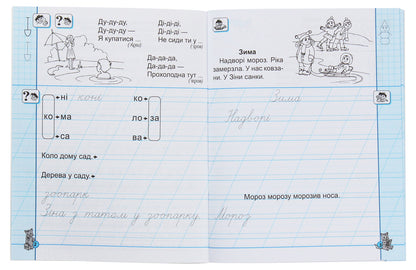 Ду-ду-ду,
Ду-ду-ду —
Я купатися ...
Ді-ді-ді,
Ді-ді-ді —
Не сиди ти у ...
Да-да-да,
Да-да-да —
Прохолодна тут ...
ко
ні
ма
са
коні
ко
ло
ва
за
Коло дому сад.
Дерева у саду.
зоопарк
Зіна з татом у зоопарку.
Зима
Надворі мороз. Ріка
замерзла. У нас ковза-
ни. У Зіни санки.
Зима
Надворі
Мороз морозу морозив носа.
Мороз